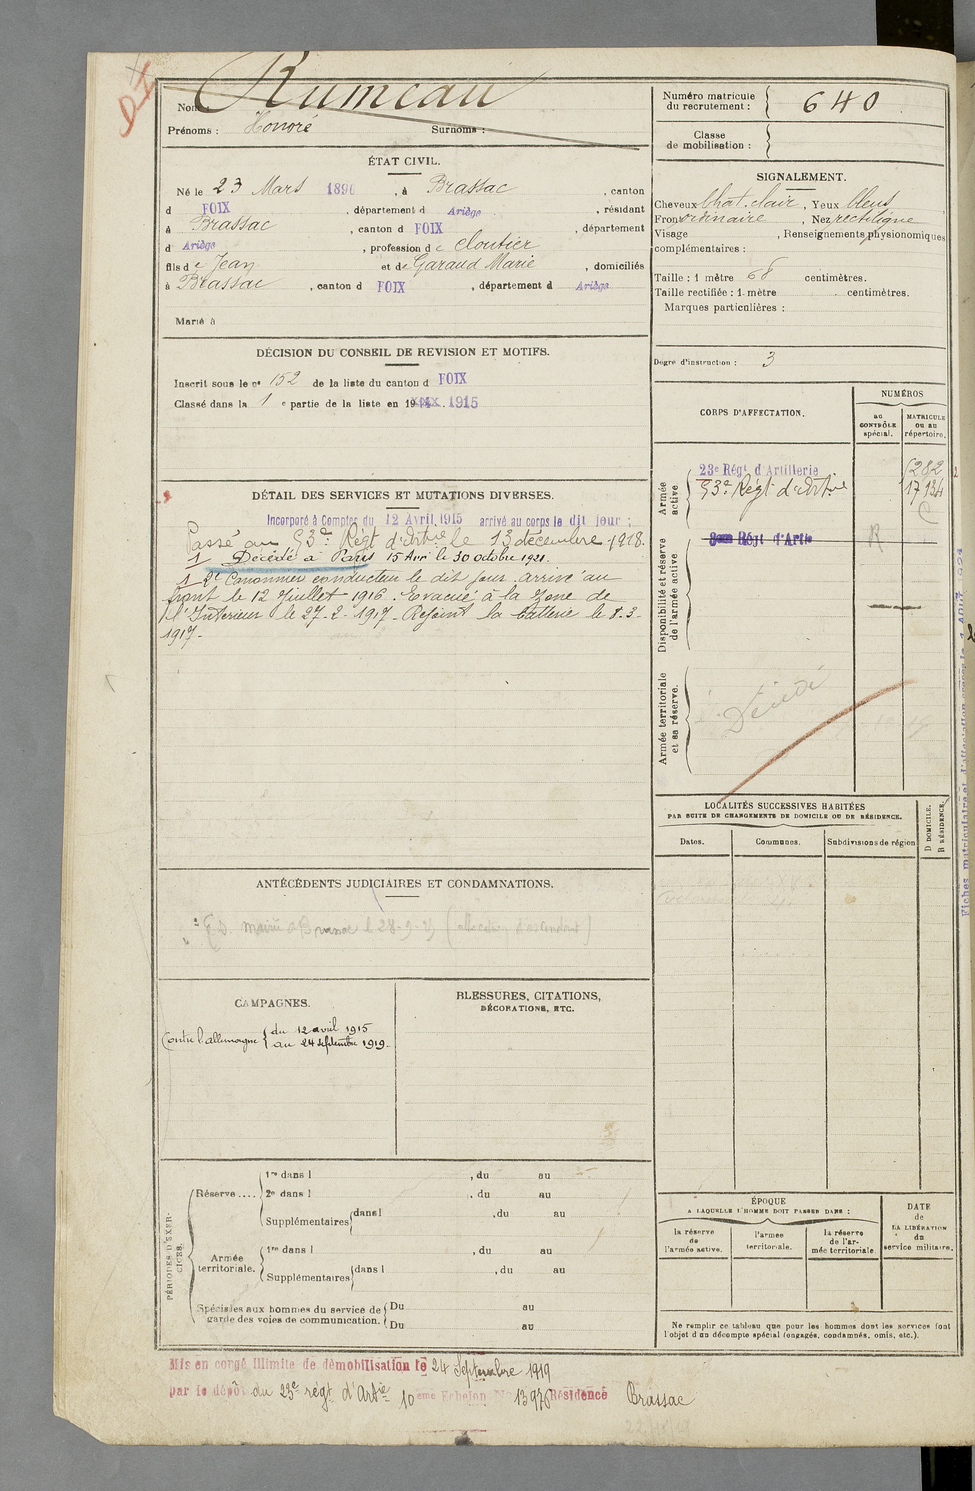 Nom : Rumeau
Prénoms : Honoré Surnoms :
Numéro matricule
du recrutement : 640
Classe
de mobilisation :
ÉTAT CIVIL.
Né le 23 Mars 1896, à Brassac, canton
d FOIX, département d Ariège, résidant
à Brassac, canton d FOIX, département
d' Ariège, profession de cloutier
fils de Jean et de Garaud Marie, domiciliés
à Brassac, canton d FOIX, département d Ariège
Marié à
SIGNALEMENT.
Cheveux chat. clair, Yeux bleus
Front ordinaire, Nez rectiligne
Visage , Renseignements physionomiques
complémentaires :
Taille : 1 mètre 68 centimètres.
Taille rectifiée : 1 mètre centimètres.
Marques particulières :
DÉCISION DU CONSEIL DE REVISION ET MOTIFS.
Inscrit sous le n° 152 de la liste du canton d FOIX
Classé dans la 1 e partie de la liste en 1915
Degré d'instruction : 3
CORPS D'AFFECTATION.
NUMÉROS
AU
CONTRÔLE
spécial.
MATRICULE
OU AU
répertoire.
Armée
active.
23e Régt d'Artillerie 6282
53e Régt d'Artie 17134
Disponibilité et réserve
de l'armée active.
Régt d'Artie R
Armée territoriale
et sa réserve.
Décédé
DÉTAIL DES SERVICES ET MUTATIONS DIVERSES.
Incorporé à Compter du 12 Avril 1915 arrivé au corps le dit jour ;
Passé au 53e Régt d'Artie le 13 décembre 1918.
1 Décédé à Paris 15 Arr le 30 octobre 1921.
1 2e Canonnier conducteur le dit jour. arrivé au
front le 12 Juillet 1916. Evacué à la Zone de
l'Intérieur le 27-2-1917. Rejoint la batterie le 8-3-
1917-
LOCALITÉS SUCCESSIVES HABITÉES
PAR SUITE DE CHANGEMENTS DE DOMICILE OU DE RÉSIDENCE.
Dates. Communes. Subdivisions de région
D DOMICILE.
R RÉSIDENCE.
Fiches matriculaire et d'affectation
ANTÉCÉDENTS JUDICIAIRES ET CONDAMNATIONS.
mairie Brassac le 28-9-
CAMPAGNES.
Contre l'allemagne { du 12 avril 1915
au 24 septembre 1919-
BLESSURES, CITATIONS,
DÉCORATIONS, ETC.
PÉRIODES D'EXERCICES.
Réserve ....
1re dans l , du au
2e dans l , du au
Supplémentaires dans l , du au
Armée
territoriale.
1re dans l , du au
Supplémentaires dans l , du au
Spéciales aux hommes du service de
garde des voies de communication.
Du au
Du au
ÉPOQUE
A LAQUELLE L'HOMME DOIT PASSER DANS :
la réserve
de
l'armée active.
l'armée
territoriale.
la réserve
de l'armée territoriale.
DATE
de
LA LIBÉRATION
du
service militaire.
Ne remplir ce tableau que pour les hommes dont les services font
l'objet d'un décompte spécial (engagés, condamnés, omis, etc.).
Mis en congé illimité de démobilisation le 24 Septembre 1919
par le dépôt du 23e régt d'Artie 10 eme Echelon No 13976 Résidence Brassac